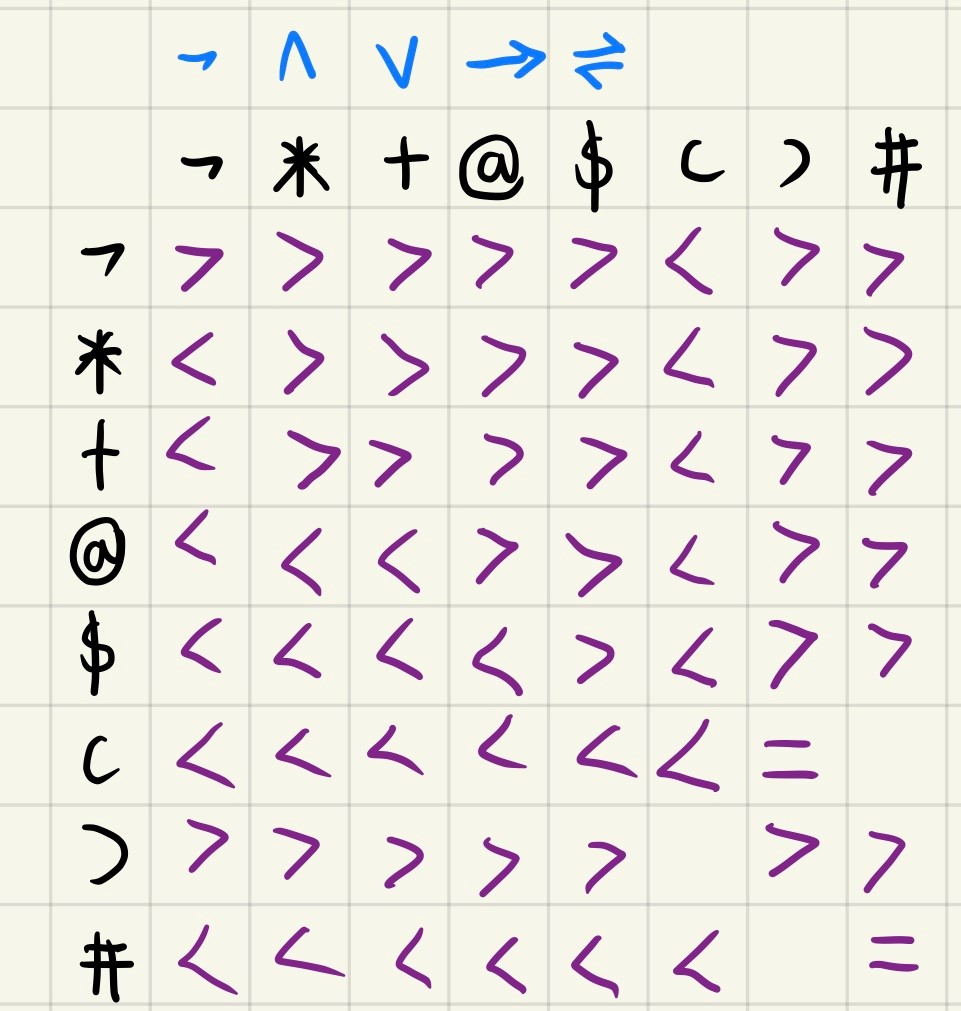 ¬ ∧ ∨ → ⇌
¬ * + @ $ ( ) #
¬ > > > > > < > >
* < > > > > < > >
+ < > > > > < > >
@ < < < > > < > >
$ < < < < > < > >
( < < < < < < =
) > > > > > > >
# < < < < < < =